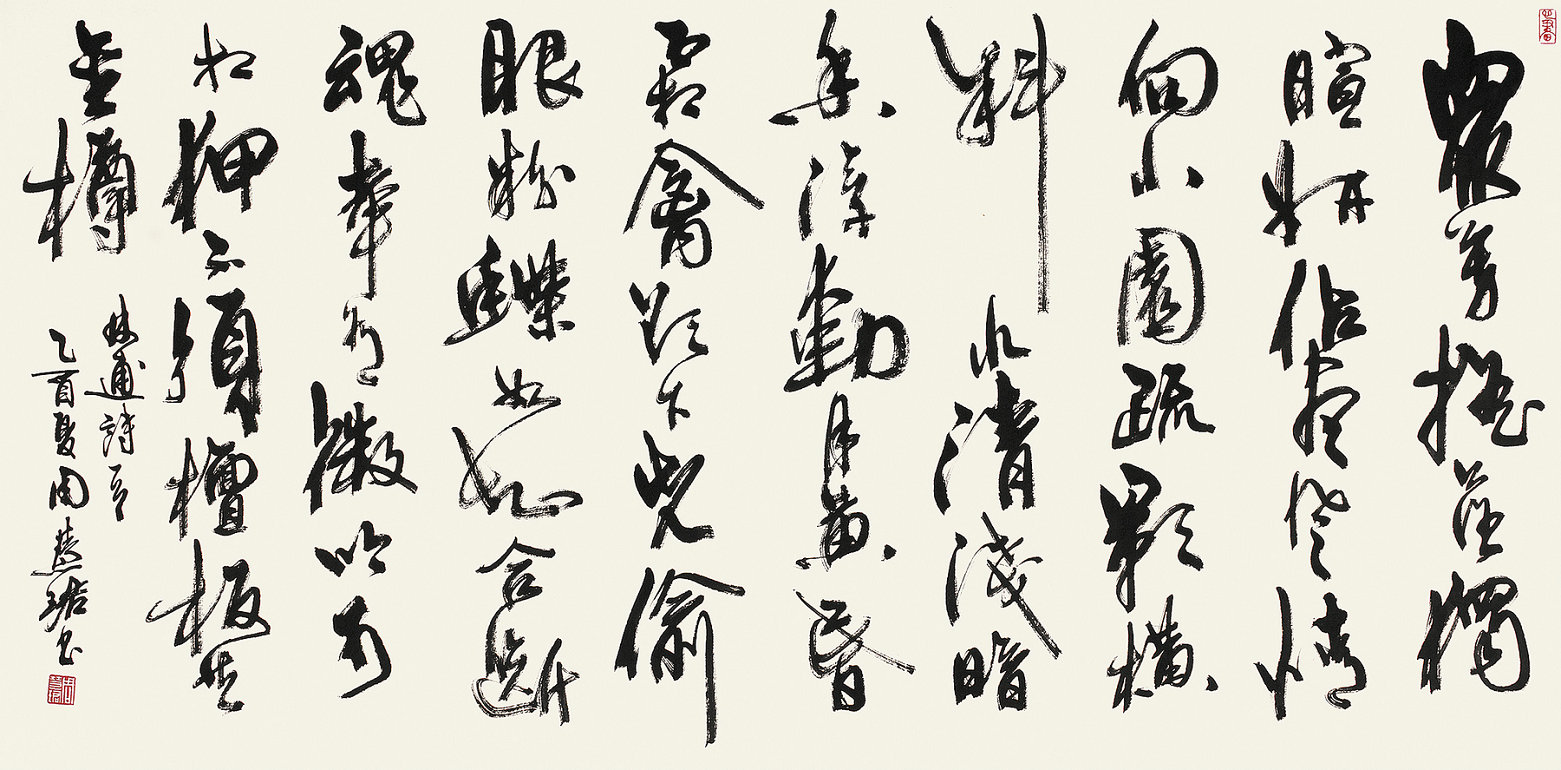 眾芳搖落獨
暄妍佔盡風情
向小園疏影橫
斜水清淺暗
香浮動月黃昏
霜禽欲下先偷
眼粉蝶如知合斷
魂幸有微吟可
相狎不須檀板共
金樽
林逋詩
乙酉夏周慧珺書